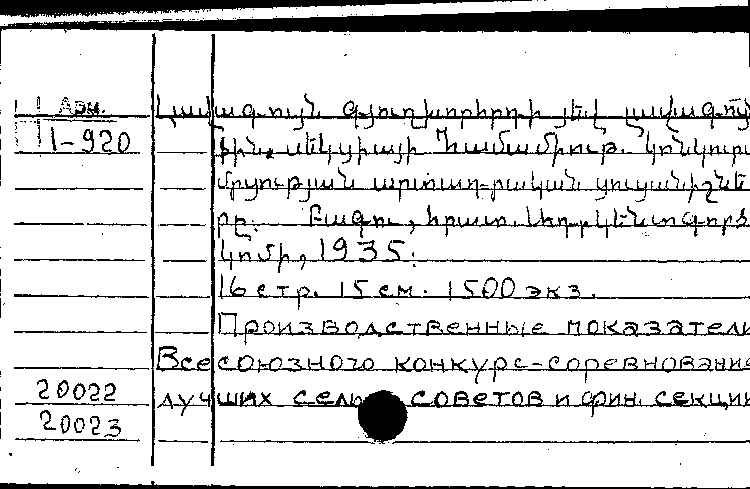 Арм.
1-920
Լավագույն գյուղխորհրդի յեվ լավագույ
ֆին. սեկցիայի Համամիութ. կոնկուրս
մրցության արտադրական ցուցանիշնե
րը. Բագու, հրատ.
կոմի, 1935.
16 стр. 15 см. 1500 экз.
Производственные показатели
Всесоюзного конкурс-соревнование
лучших сель советов и фин. секции
20022
20023